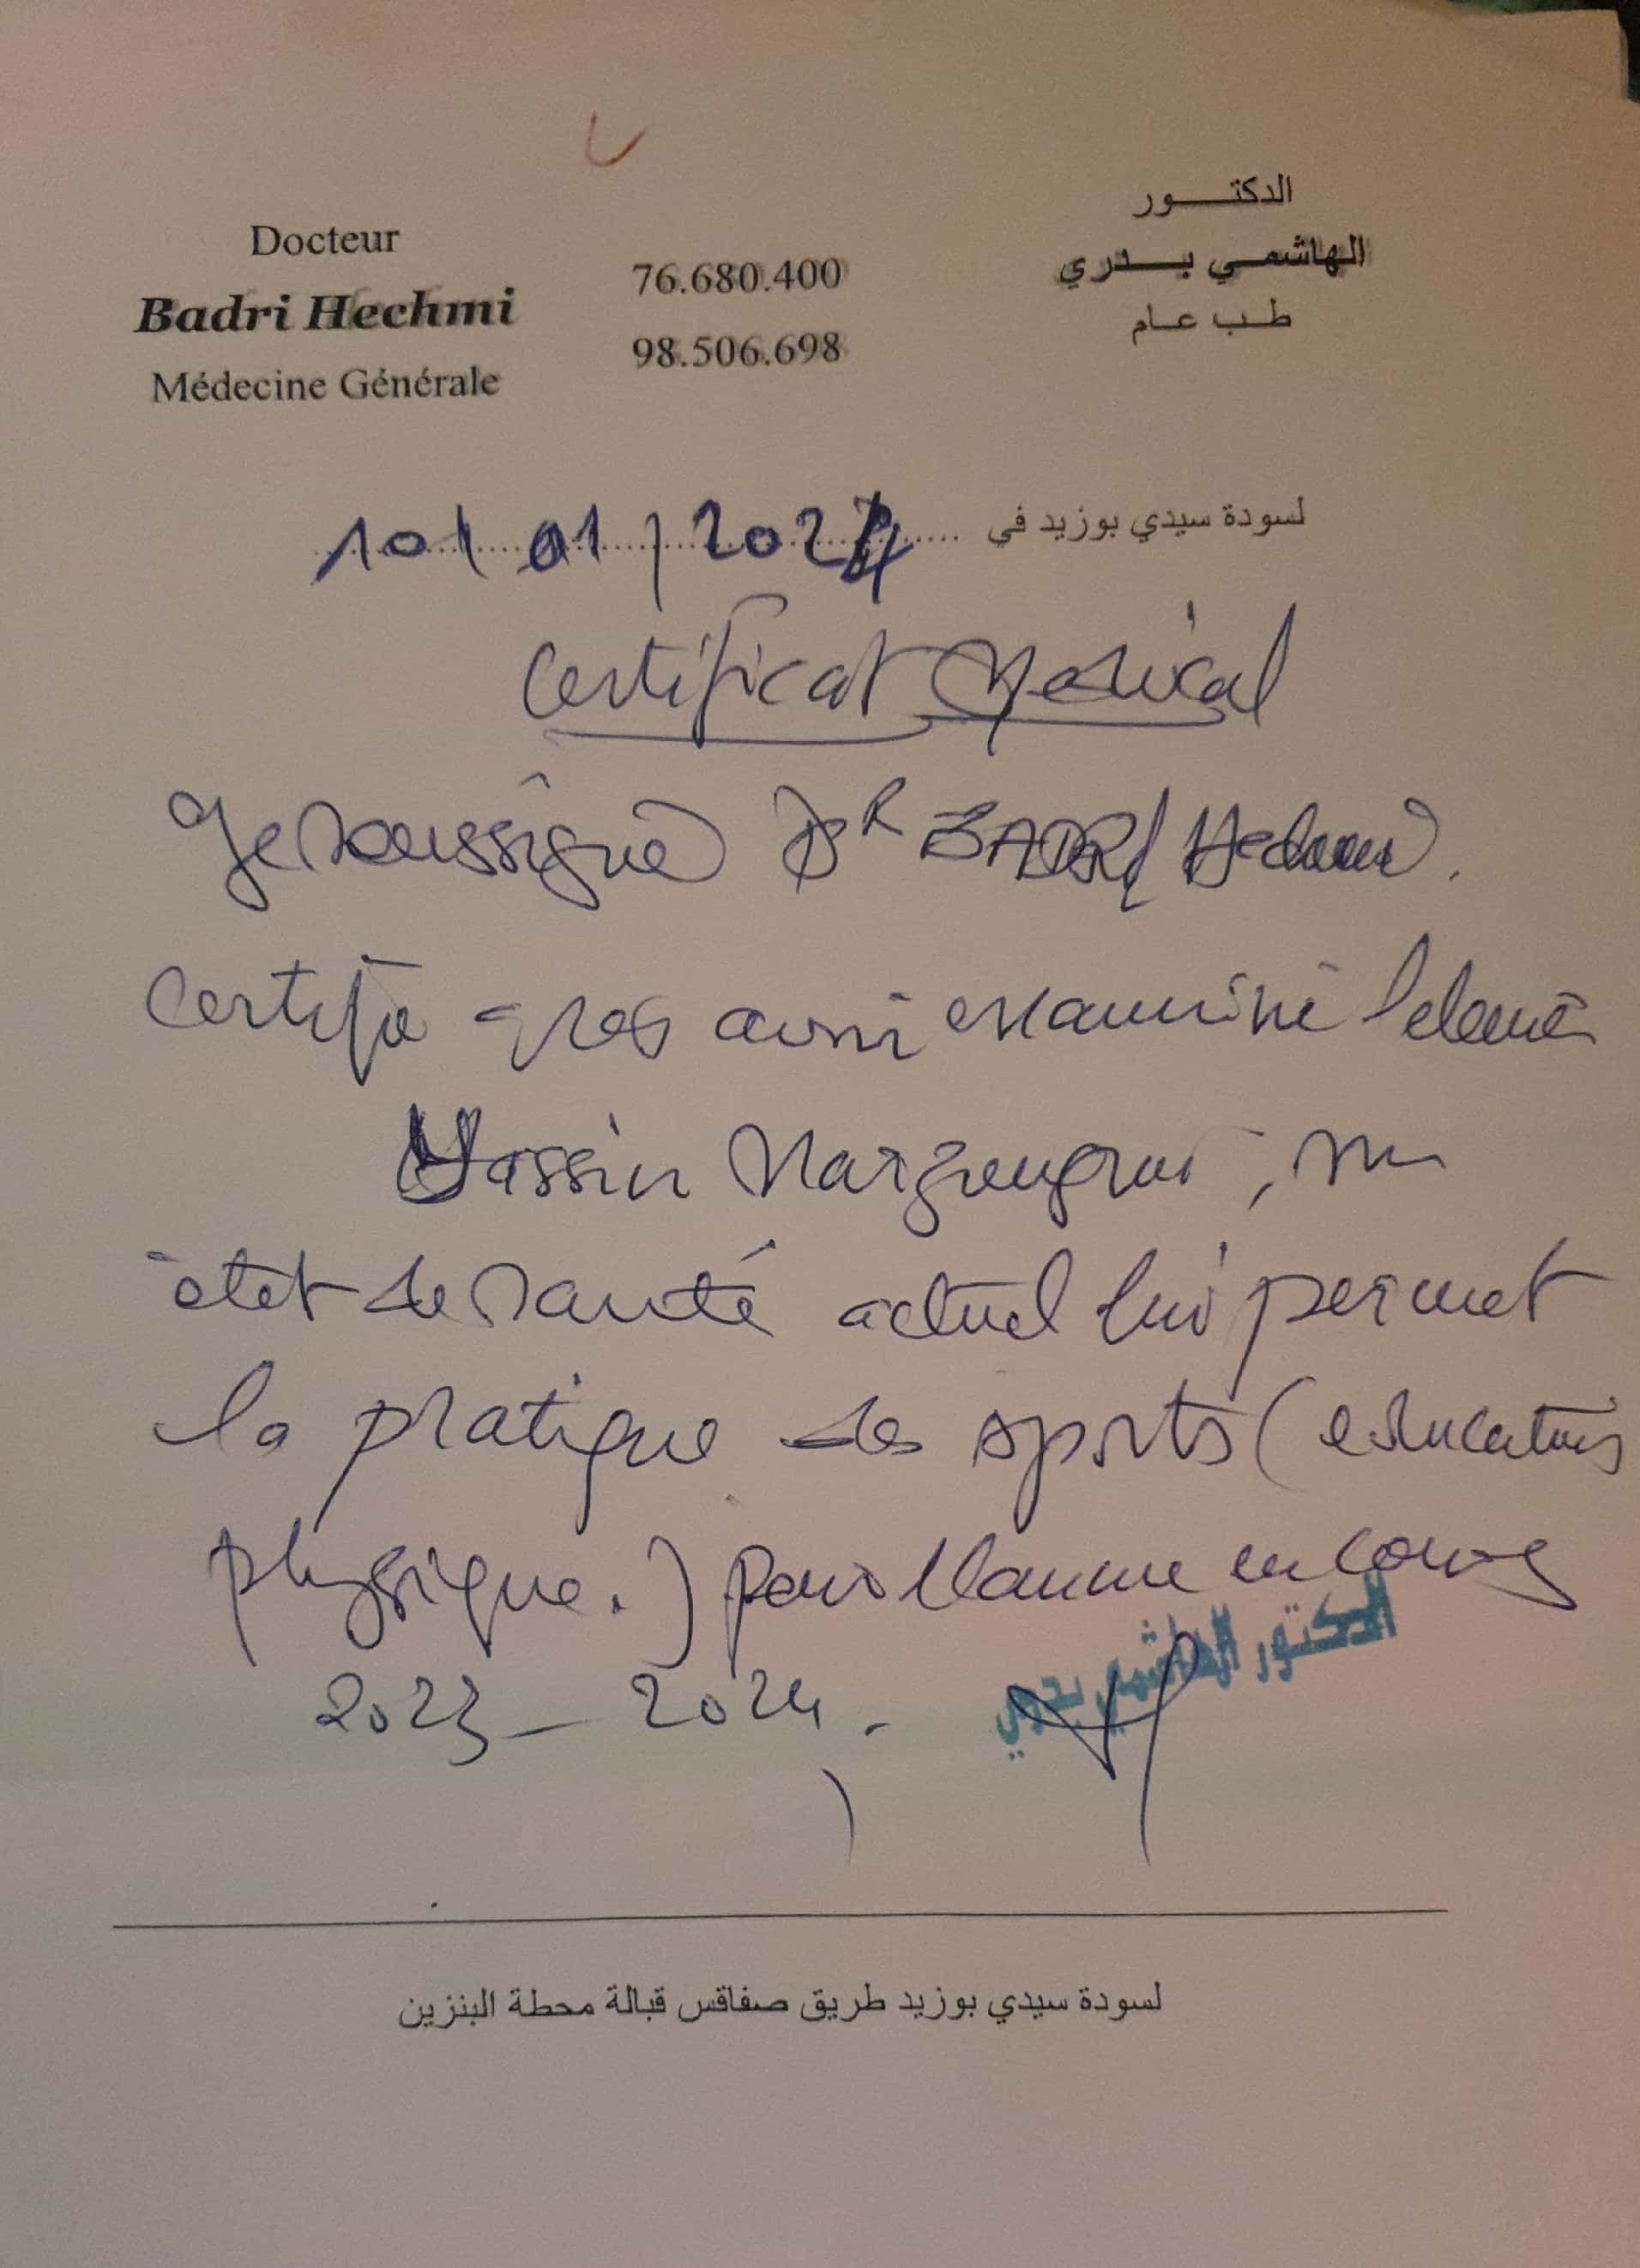 Docteur
Badri Hechmi
Médecine Générale
76.680.400
98.506.698
الدكتور
الهاشمي بدري
طب عام
لسودة سيدي بوزيد في 10/01/2024
Certificat Médical
Je soussigné Dr BADRI Hechmi.
certifie avoir examiné l'elève
Yassin
état de santé actuel lui permet
la pratique des sports (education
physique.) pour l'annee en cours
2023 - 2024.
الدكتور الهاشمي بدري
لسودة سيدي بوزيد طريق صفاقس قبالة محطة البنزين